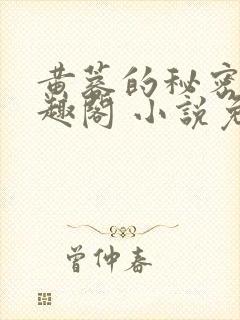 黄蓉的秘密
趣阁 小说免
曾仲春